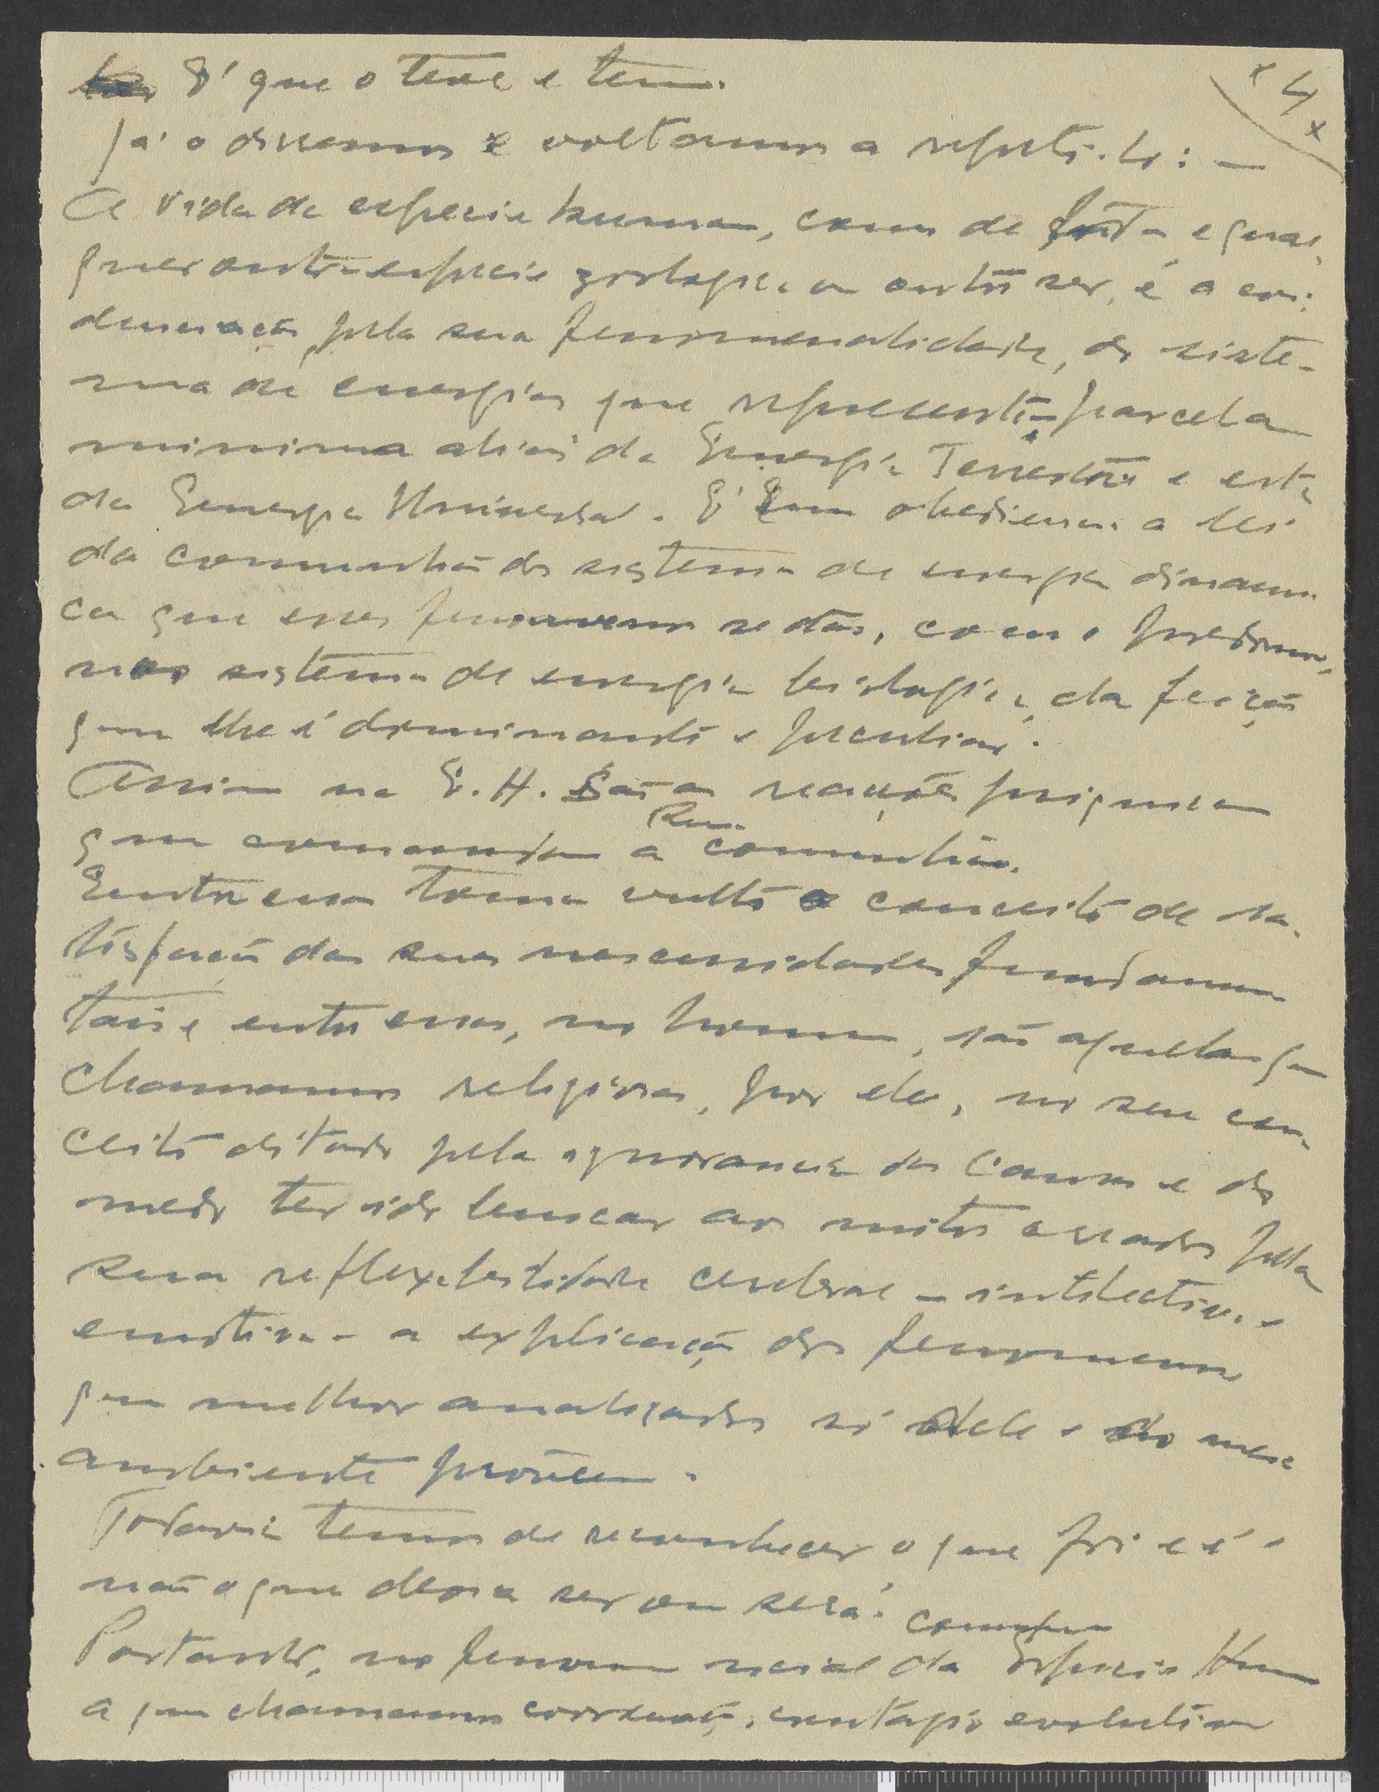 É que o teve e tem.
4
Já o dissemos e voltamos a repeti-lo: —
A vida da especie humana, como de toda e qual-
quer outra especie zoologica ou outro ser, é a con-
densação, pela sua fenomenalidade, do siste-
ma de energias que representa parcela
minima aliás da Energia Terrestre e esta
da Energia Universal. É em obediencia a lei
da comunhão do sistema de energia dinami-
ca que esses fenomenos se dão, com o predomi-
nio sistema de energia biologica, da feição
que lhe é dominante e peculiar.
Assim na E. H. São as reações psiquicas
que comandam a sua comunhão.
Entre essas toma vulto o conceito de sa-
tisfação das suas necessidades fundamen-
tais e entre essas, no homem, são aquelas que
chamamos religiosas, por ele, no seu con-
ceito ditado pela ignorancia das causas e do
medo ter ido buscar aos mitos creados pela
sua reflexibilidade cerebral – intelectiva e
emotiva – a explicação dos fenomenos
que melhor analizados só dele e do meio
ambiente provêem.
Todavia temos de reconhecer o que foi e é e
não o que devia ser ou será.
Portanto, no fenomeno social da Especie Hum
a que chamamos evolutiva